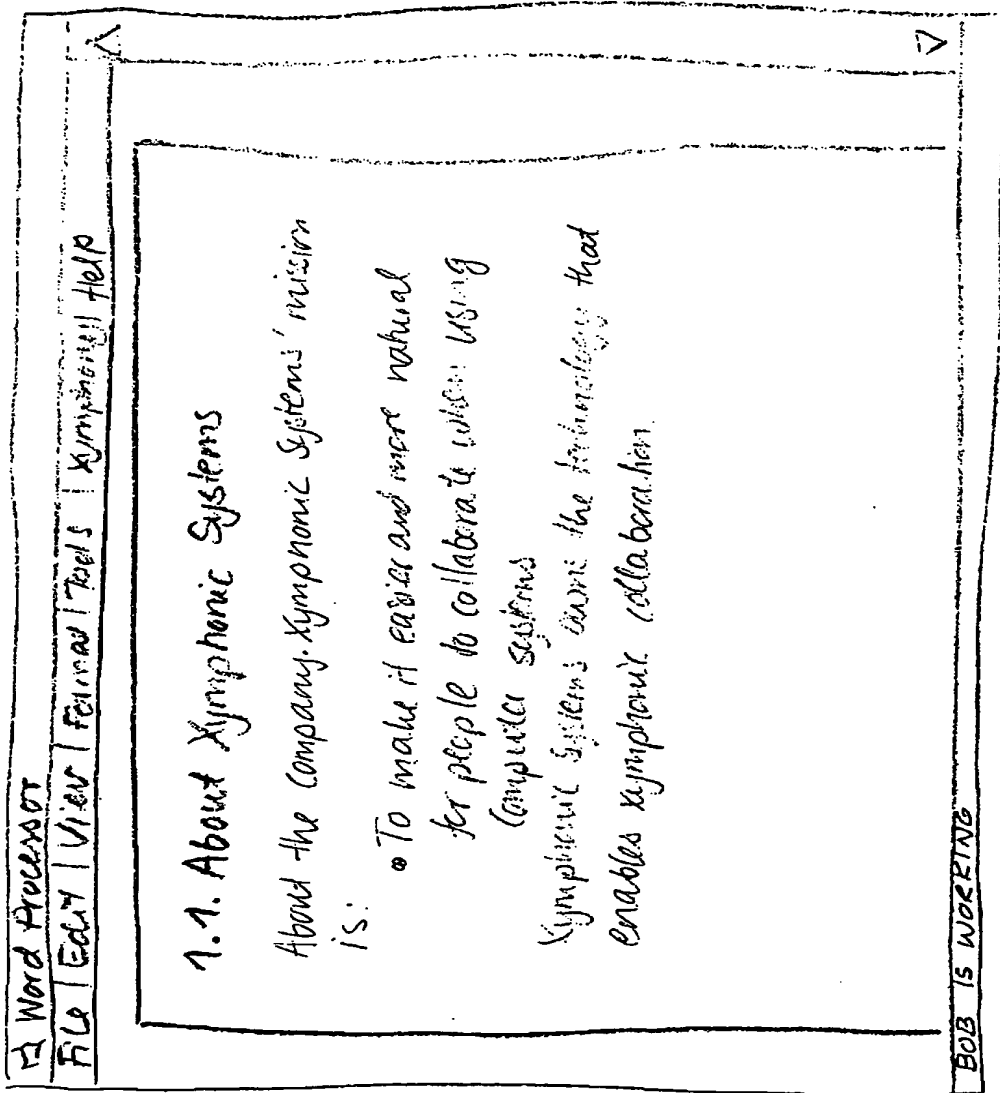 Word Processor
File | Edit | View | Format | Tools | Xymphony | Help
1.1. About Xymphonic Systems
About the Company. Xymphonic Systems' mission
is:
• To make it easier and more natural
for people to collaborate when using
Computer systems
Xymphonic Systems owns the technology that
enables xymphonic collaboration
BOB IS WORKING